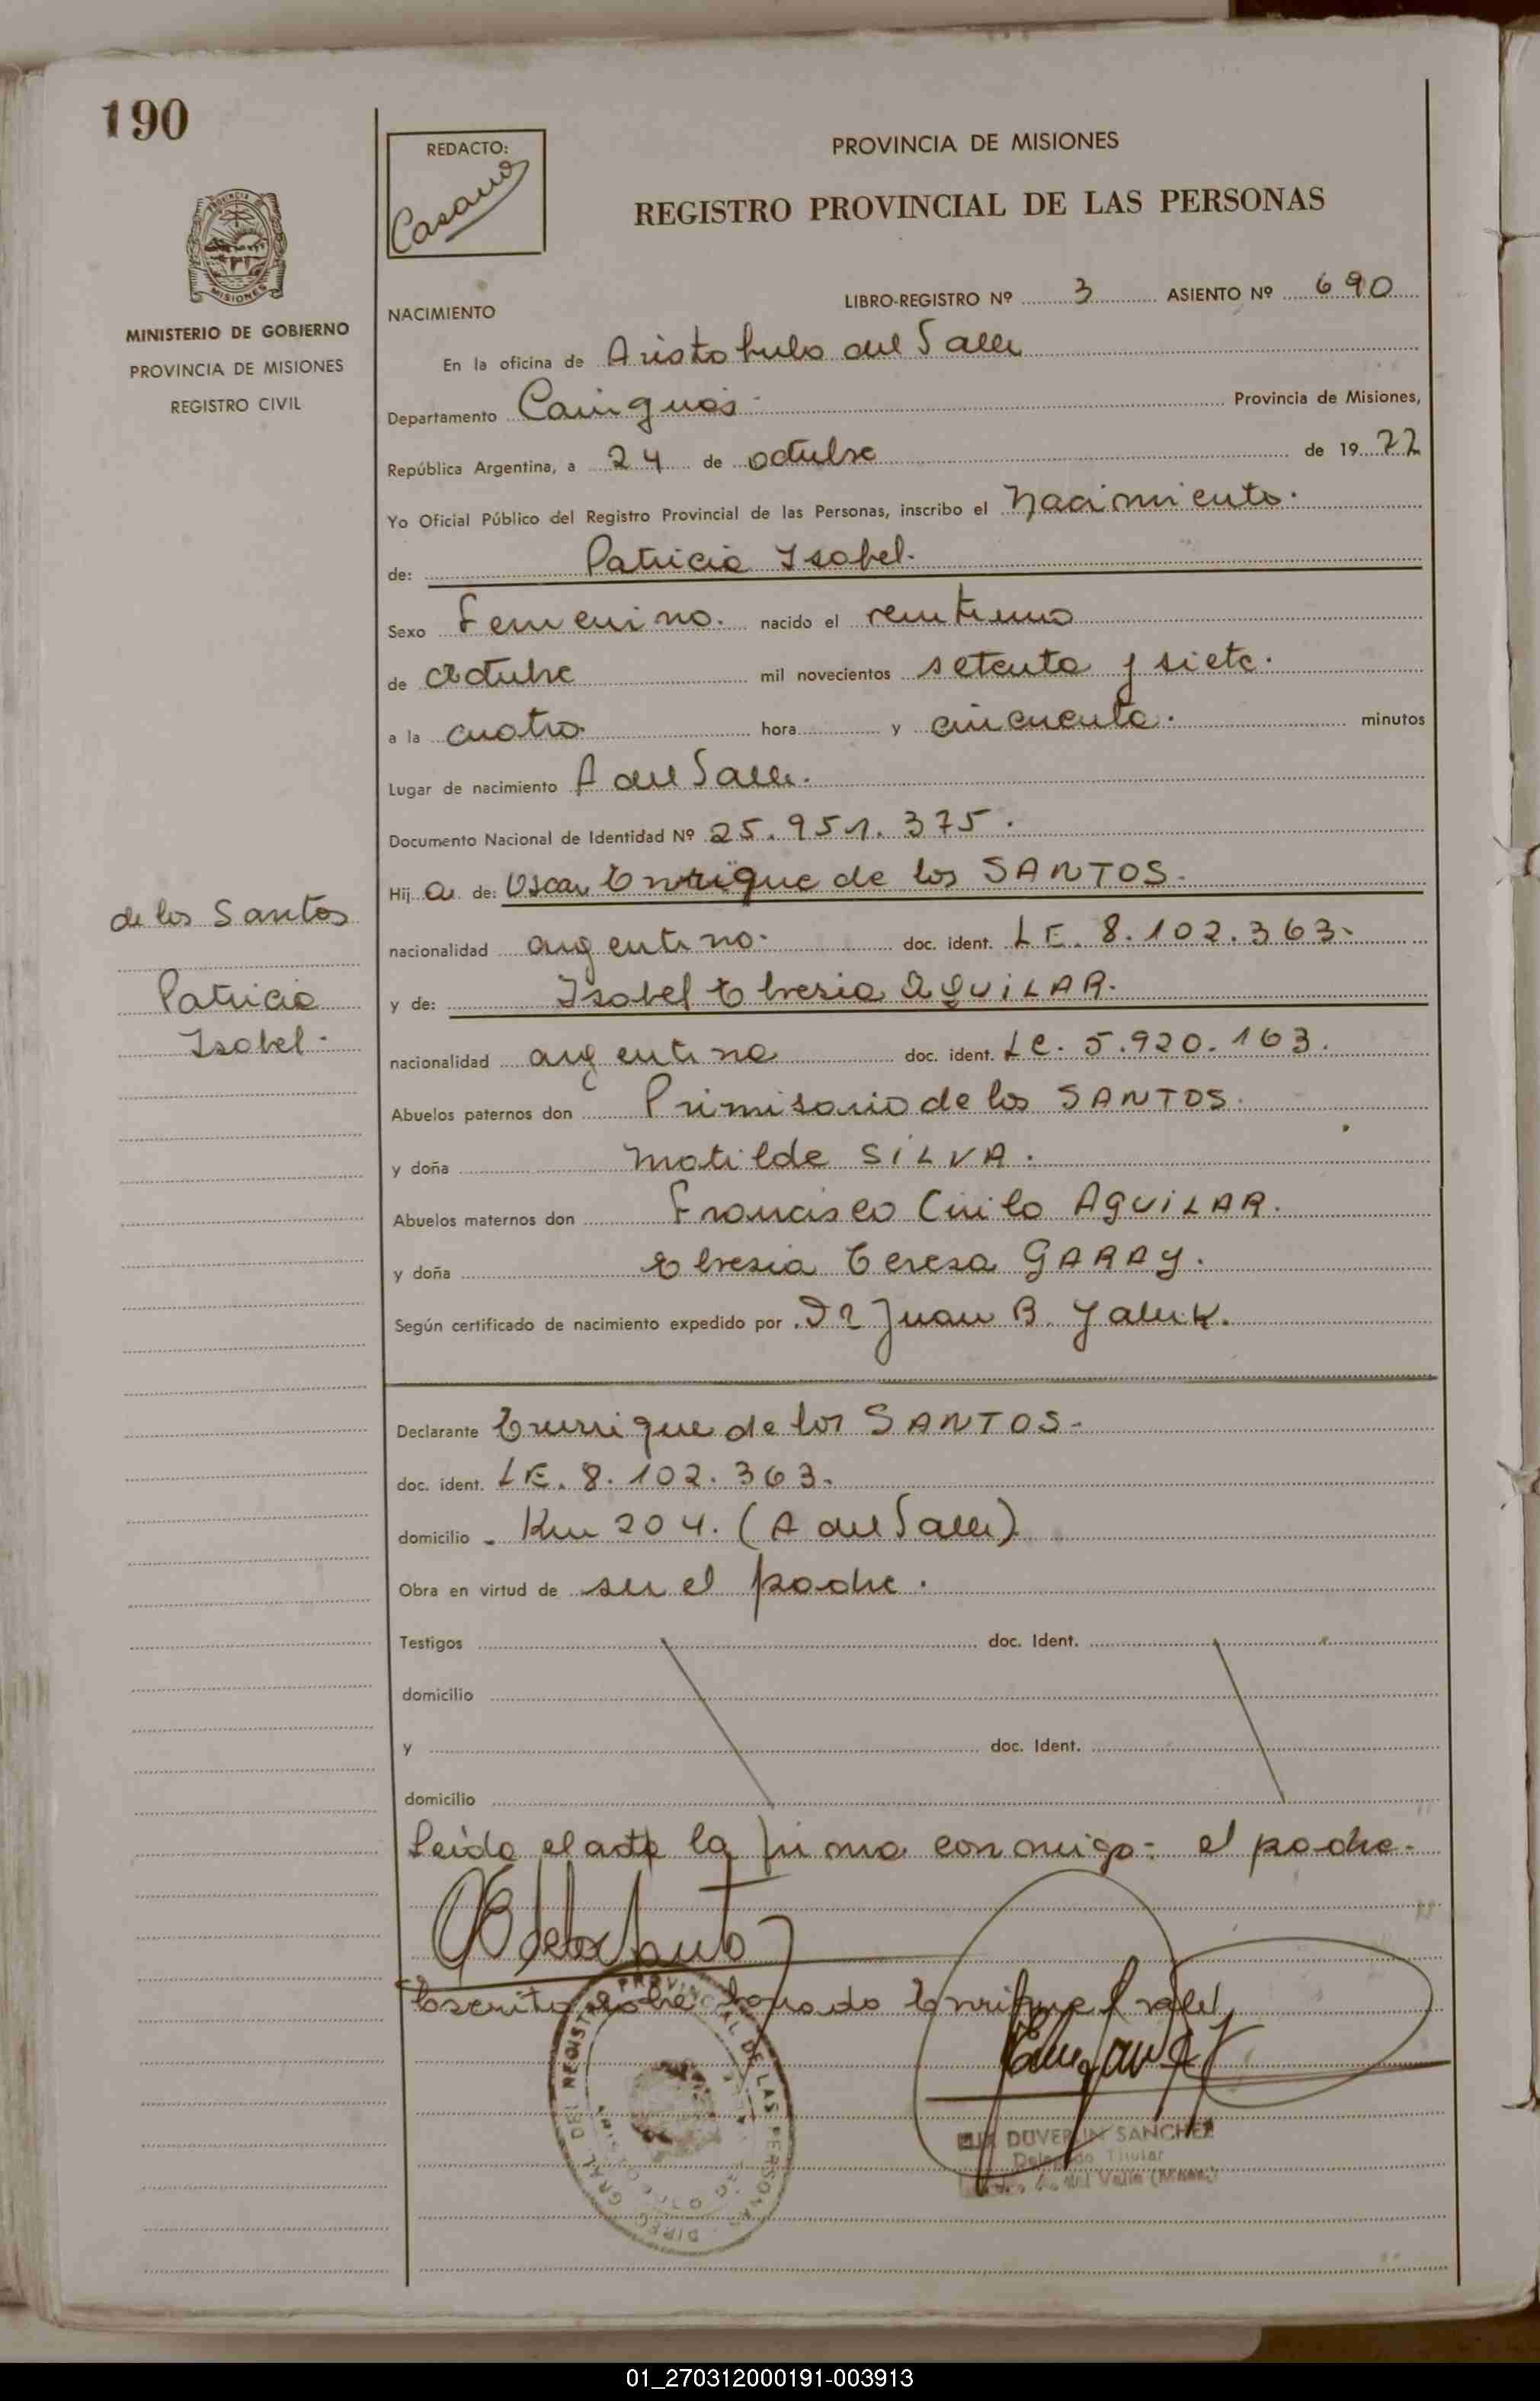 190
REDACTO:
Casano
PROVINCIA DE MISIONES
REGISTRO PROVINCIAL DE LAS PERSONAS
MISIONES
MINISTERIO DE GOBIERNO
PROVINCIA DE MISIONES
REGISTRO CIVIL
LIBRO-REGISTRO Nº 3 ASIENTO Nº 690
NACIMIENTO
En la oficina de Aristobulo del Valle
Departamento Cainguas Provincia de Misiones,
República Argentina, a 24 de octubre de 1977
Yo Oficial Público del Registro Provincial de las Personas, inscribo el Nacimiento.
de: Patricia Isabel.
Sexo Femenino. nacido el veintiuno
de octubre mil novecientos setenta y siete.
a la cuatro hora y cincuenta. minutos
Lugar de nacimiento A del Valle.
Documento Nacional de Identidad Nº 25.951.375.
Hij a de: Oscar Enrique de los SANTOS.
nacionalidad argentino. doc. ident. LE. 8.102.363.
y de: Isabel Ebresia AGUILAR.
nacionalidad argentina doc. ident. LC. 5.920.163.
Abuelos paternos don de los SANTOS.
y doña Matilde SILVA.
Abuelos maternos don Francisco Cirilo AGUILAR.
y doña Ebresia Teresa GARAY.
Según certificado de nacimiento expedido por Dr Juan B.
de los Santos
Patricia
Isabel.
Declarante Enrrique de los SANTOS.
doc. ident. LE. 8.102.363.
domicilio Km 204. (A del Valle)
Obra en virtud de ser el padre.
Testigos doc. Ident.
domicilio
y doc. Ident.
domicilio
Leida el acta la firma conmigo: el padre.
Escrito sobre borrado Enrique vale
DIREC. GRAL. DEL REGISTRO PROVINCIAL DE LAS PERSONAS
DUVERLIN SANCHEZ
Delegado Titular
del Valle
01_270312000191-003913